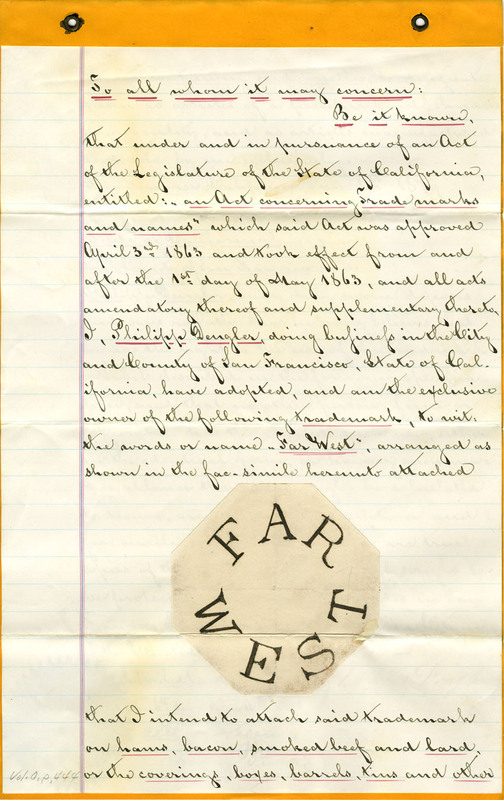 To all whom it may concern:
Be it known,
that under and in pursuance of an Act
of the Legislature of the State of California,
entitled: „ an Act concerning Trade marks
and names" which said Act was approved
April 3rd 1863 and took effect from and
after the 1st day of May 1863, and all acts
amendatory thereof and supplementary thereto,
I, Philipp Dengler, doing business in the City
and County of San Francisco, State of Cal-
ifornia, have adopted, and am the exclusive
owner of the following trademark, to wit:
the words or name „Far West", arranged as
shown in the fac-simile hereunto attached
FAR
WEST
that I intend to attach said trademark
on hams, bacon, smoked beef and lard,
or the coverings, boxes, barrels, tins and other
Vol. D, p. 444